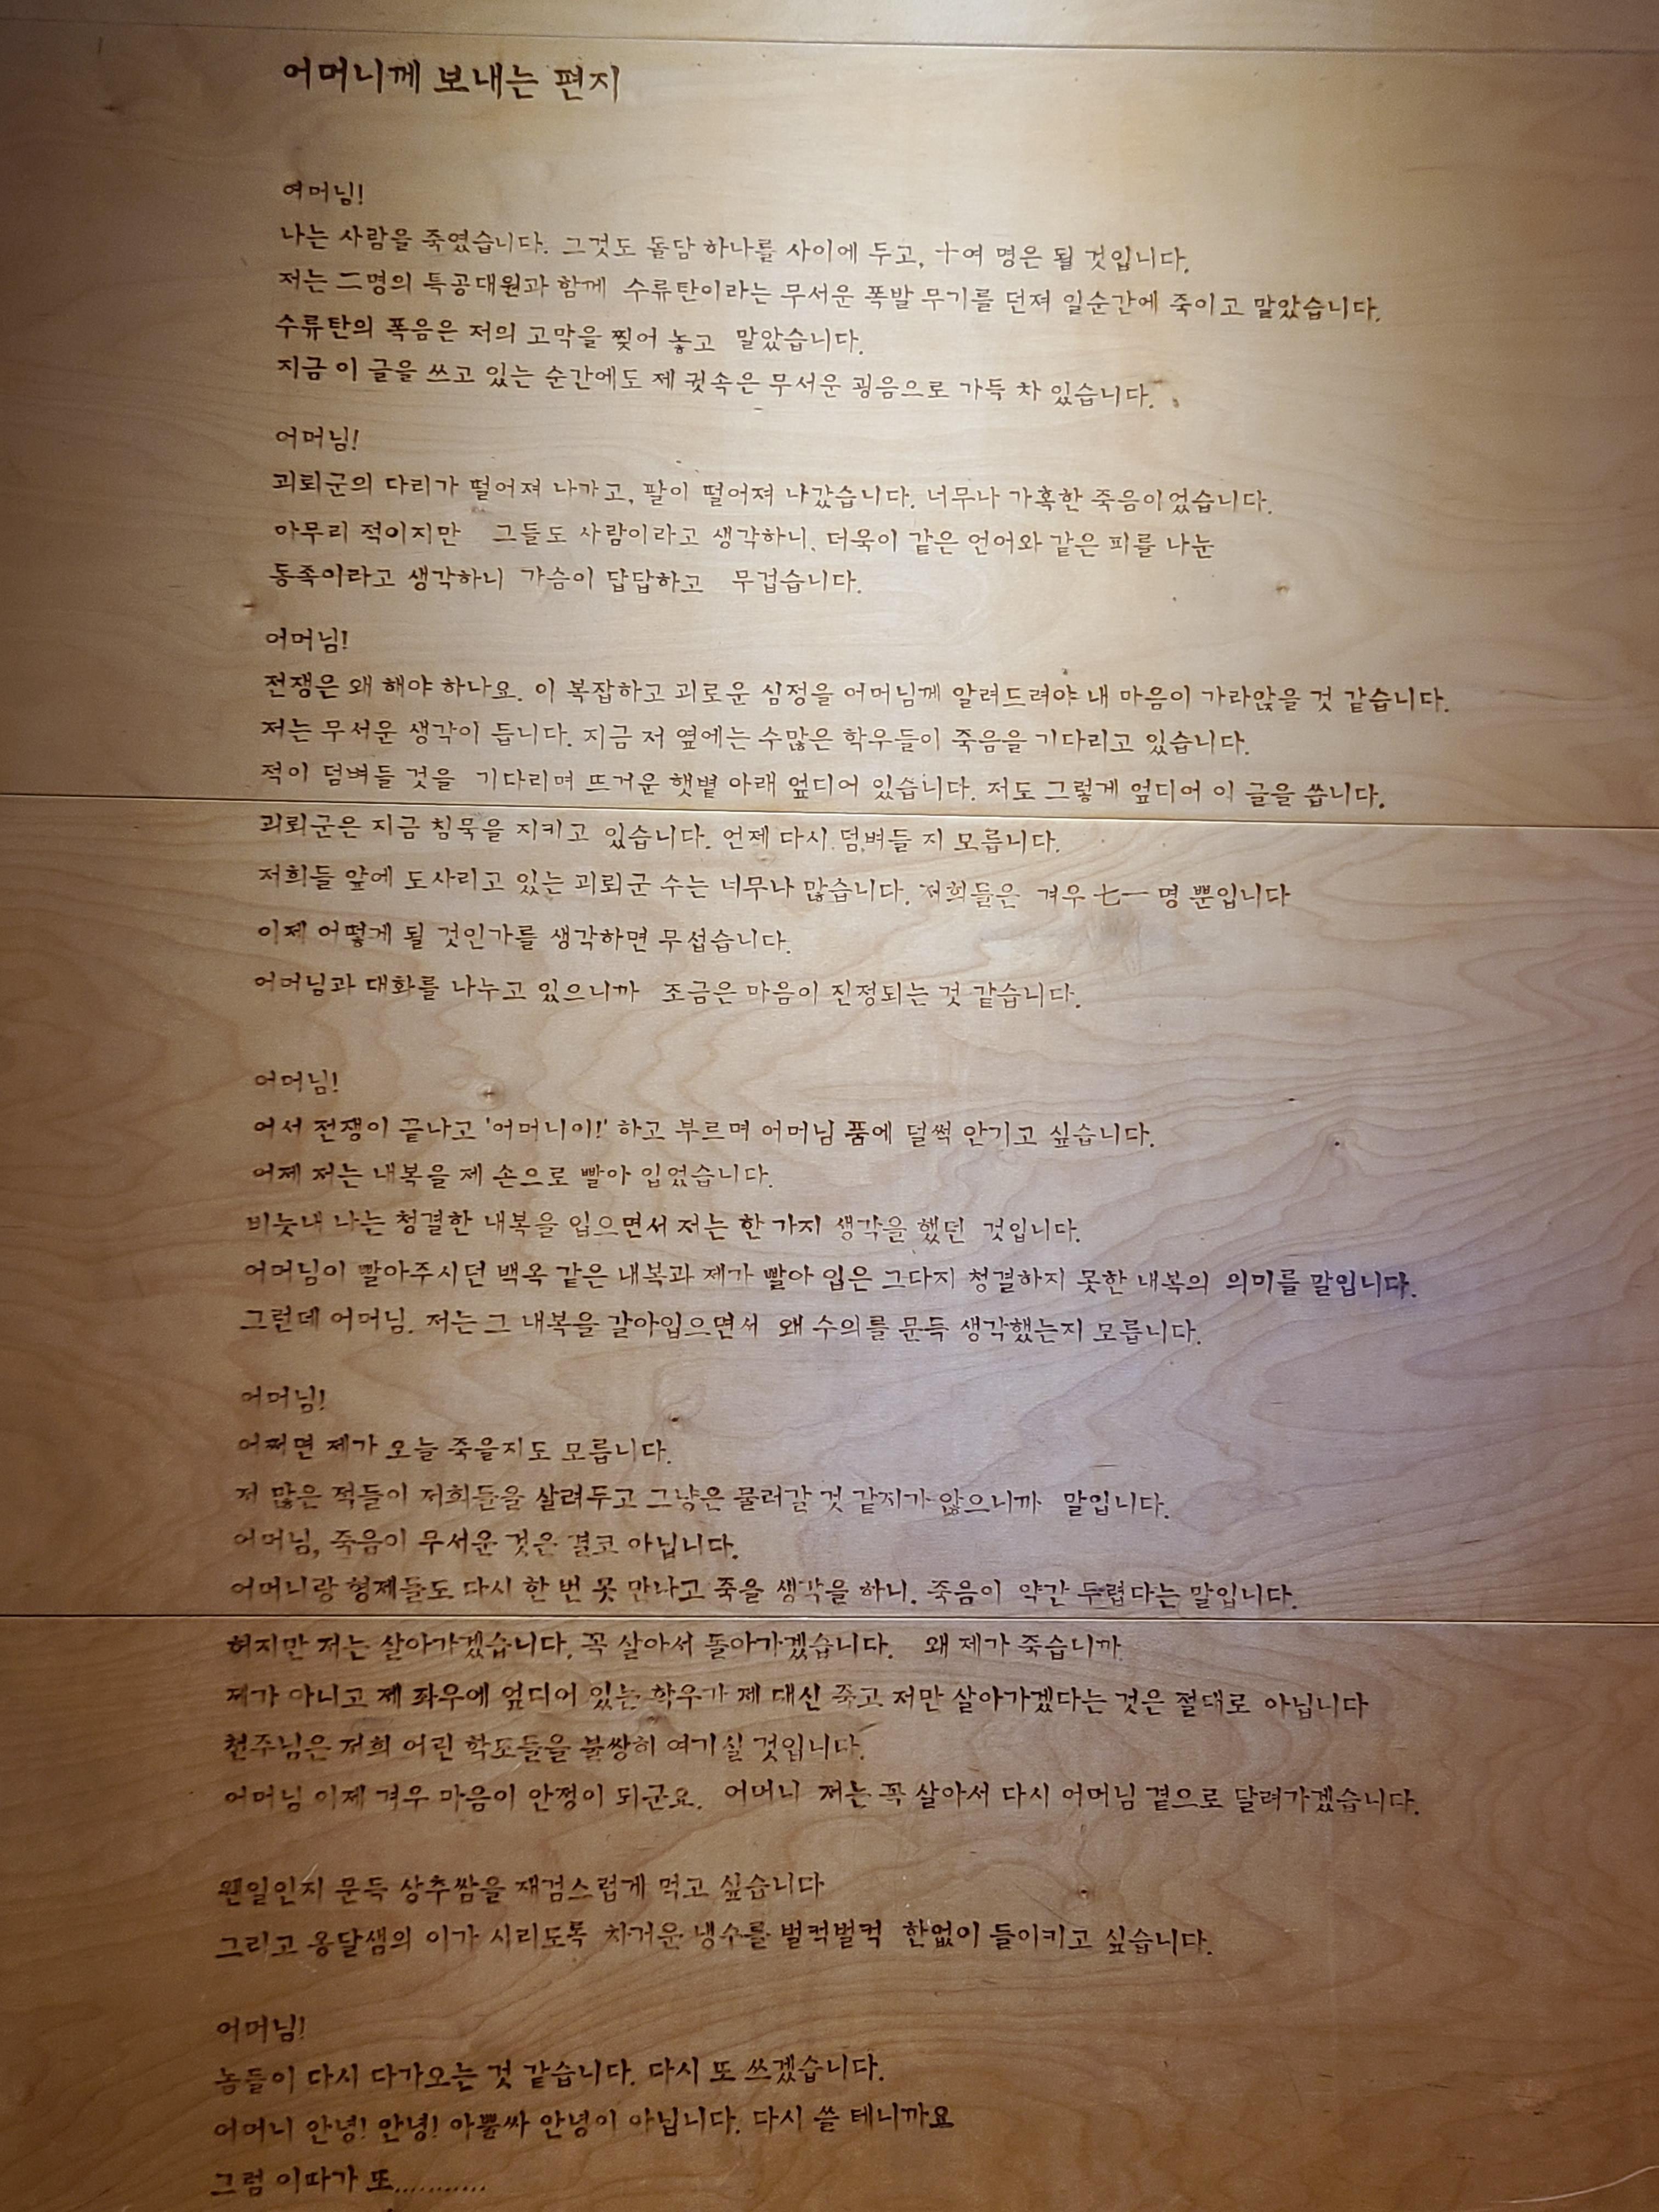 어머니께 보내는 편지
여머님!
나는 사람을 죽였습니다. 그것도 돌담 하나를 사이에 두고, 十여 명은 될 것입니다.
저는 二명의 특공대원과 함께 수류탄이라는 무서운 폭발 무기를 던져 일순간에 죽이고 말았습니다.
수류탄의 폭음은 저의 고막을 찢어 놓고 말았습니다.
지금 이 글을 쓰고 있는 순간에도 제 귓속은 무서운 굉음으로 가득 차 있습니다.
어머님!
괴뢰군의 다리가 떨어져 나가고, 팔이 떨어져 나갔습니다. 너무나 가혹한 죽음이었습니다.
아무리 적이지만 그들도 사람이라고 생각하니. 더욱이 같은 언어와 같은 피를 나눈
동족이라고 생각하니 가슴이 답답하고 무겁습니다.
어머님!
전쟁은 왜 해야 하나요. 이 복잡하고 괴로운 심정을 어머님께 알려드려야 내 마음이 가라앉을 것 같습니다.
저는 무서운 생각이 듭니다. 지금 저 옆에는 수많은 학우들이 죽음을 기다리고 있습니다.
적이 덤벼들 것을 기다리며 뜨거운 햇볕 아래 엎디어 있습니다. 저도 그렇게 엎디어 이 글을 씁니다.
괴뢰군은 지금 침묵을 지키고 있습니다. 언제 다시 덤벼들 지 모릅니다.
저희들 앞에 도사리고 있는 괴뢰군 수는 너무나 많습니다. 저희들은 겨우 七一 명 뿐입니다
이제 어떻게 될 것인가를 생각하면 무섭습니다.
어머님과 대화를 나누고 있으니까 조금은 마음이 진정되는 것 같습니다.
어머님!
어서 전쟁이 끝나고 '어머니이!' 하고 부르며 어머님 품에 덜썩 안기고 싶습니다.
어제 저는 내복을 제 손으로 빨아 입었습니다.
비눗내 나는 청결한 내복을 입으면서 저는 한 가지 생각을 했던 것입니다.
어머님이 빨아주시던 백옥 같은 내복과 제가 빨아 입은 그다지 청결하지 못한 내복의 의미를 말입니다.
그런데 어머님. 저는 그 내복을 갈아입으면서 왜 수의를 문득 생각했는지 모릅니다.
어머님!
어쩌면 제가 오늘 죽을지도 모릅니다.
저 많은 적들이 저희들을 살려두고 그냥은 물러갈 것 같지가 않으니까 말입니다.
어머님, 죽음이 무서운 것은 결코 아닙니다.
어머니랑 형제들도 다시 한 번 못 만나고 죽을 생각을 하니. 죽음이 약간 두렵다는 말입니다.
허지만 저는 살아가겠습니다. 꼭 살아서 돌아가겠습니다. 왜 제가 죽습니까
제가 아니고 제 좌우에 엎디어 있는 학우가 제 대신 죽고 저만 살아가겠다는 것은 절대로 아닙니다
천주님은 저희 어린 학도들을 불쌍히 여기실 것입니다.
어머님 이제 겨우 마음이 안정이 되군요. 어머니 저는 꼭 살아서 다시 어머님 곁으로 달려가겠습니다.
웬일인지 문득 상추쌈을 재검스럽게 먹고 싶습니다
그리고 옹달샘의 이가 시리도록 차거운 냉수를 벌컥벌컥 한없이 들이키고 싶습니다.
어머님!
놈들이 다시 다가오는 것 같습니다. 다시 또 쓰겠습니다.
어머니 안녕! 안녕! 아뿔싸 안녕이 아닙니다. 다시 쓸 테니까요
그럼 이따가 또...........